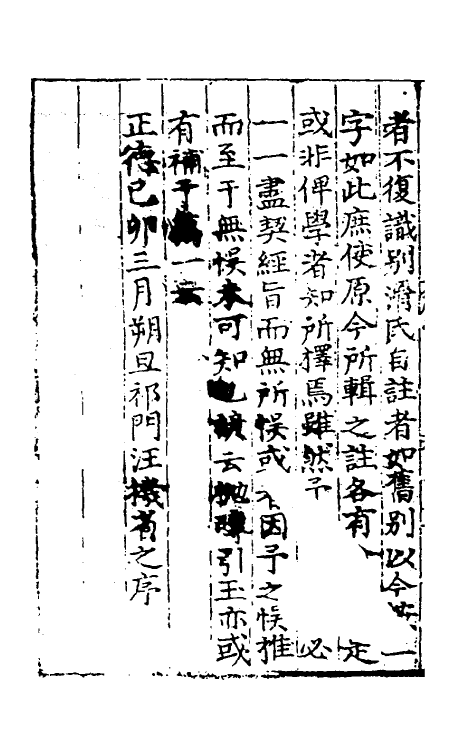 者不復識別滑氏自註者如舊別以今
字如此庶使原今所輯之註各有 定
或非俾學者知所擇焉雖然予 必
一一盡契經旨而無所悮或 因予之悮推
而至于無悮未可知也 云拋磚引玉亦或
有補于萬一云
正德己卯三月朔旦祁門汪機省之序